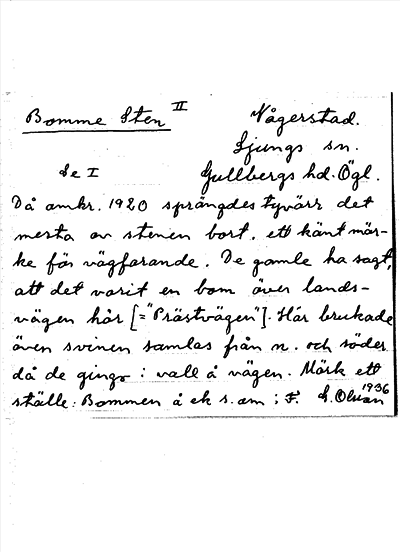 Bomme Sten II
Vågerstad.
Ljungs sn.
Se I
Gullbergs hd. Ögl.
Då omkr. 1920 sprängdes tyvärr det
mesta av stenen bort, ett känt mär-
ke för vägfarande. De gamle ha sagt,
att det varit en bom över lands-
vägen här [="Prästvägen"]. Här brukade
även svinen samlas från n. och söder
då de gingo i vall å vägen. Märk ett
ställe: Bommen å ek s. om i F.
1936